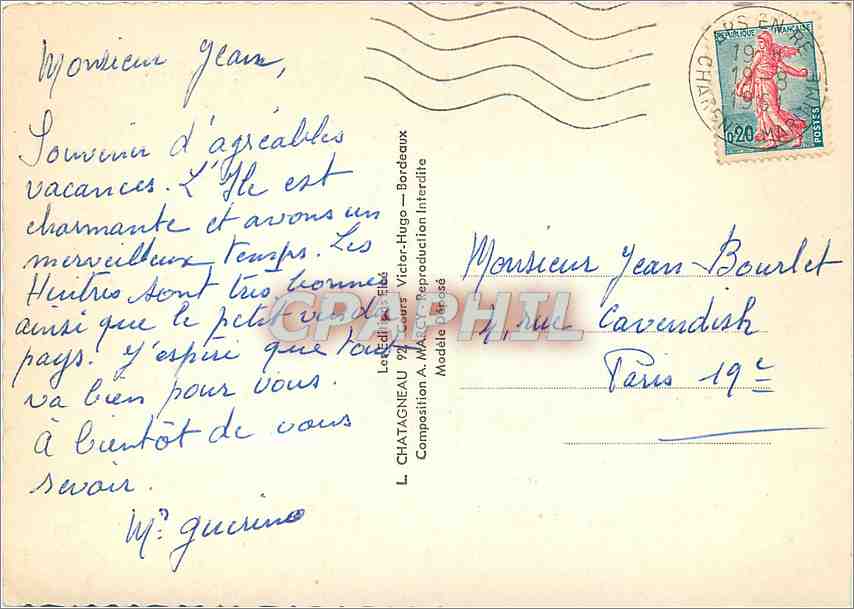 Monsieur Jean,
Souvenir d'agréables
vacances. L'Ile est
charmante et avons un
merveilleux temps. Les
Huitres sont très bonnes
ainsi que le petit vin du
pays. J'espère que tout
va bien pour vous.
À bientôt de vous
revoir.
Mr
Les Editions Elcé
L. CHATAGNEAU 92, Cours Victor-Hugo — Bordeaux
Composition A. MARCY Reproduction Interdite
Modèle Déposé
CPAPHIL
RÉPUBLIQUE FRANÇAISE
0,20
POSTES
EN RE
19
Monsieur Jean Bourlet
4, rue Cavendish
Paris 19e